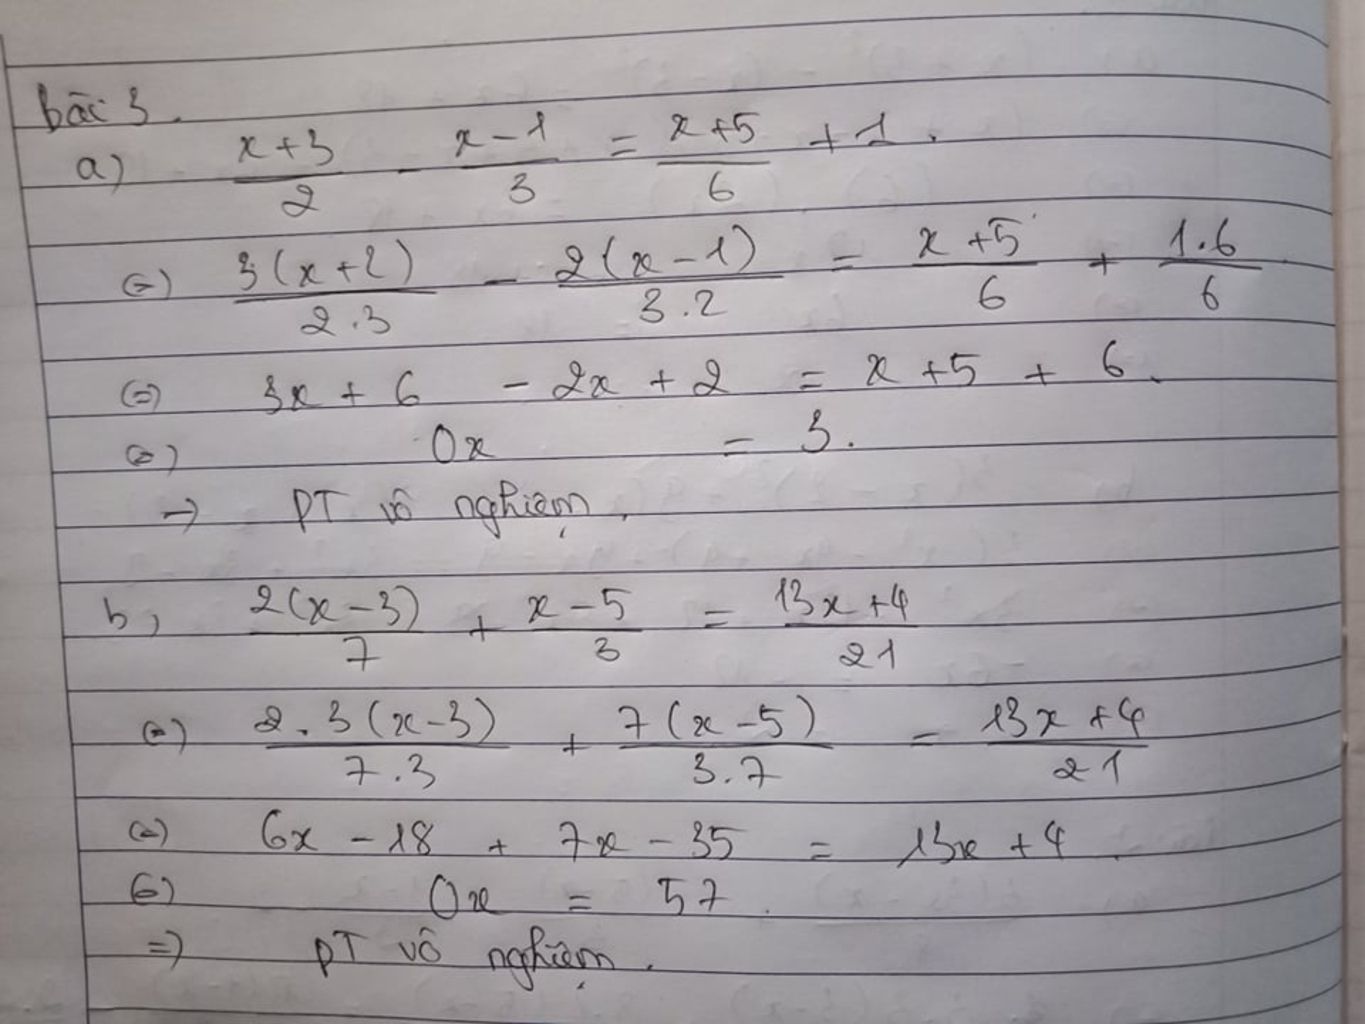 bài 3.
a) \frac{x+3}{2} - \frac{x-1}{3} = \frac{x+5}{6} + 1.
(=) \frac{3(x+2)}{2.3} - \frac{2(x-1)}{3.2} = \frac{x+5}{6} + \frac{1.6}{6}
(=) 3x + 6 - 2x + 2 = x + 5 + 6.
(=) 0x = 3.
→ PT vô nghiệm.
b, \frac{2(x-3)}{7} + \frac{x-5}{3} = \frac{13x+4}{21}
(=) \frac{2.3(x-3)}{7.3} + \frac{7(x-5)}{3.7} = \frac{13x+4}{21}
(=) 6x - 18 + 7x - 35 = 13x + 4
(=) 0x = 57.
=) PT vô nghiệm.